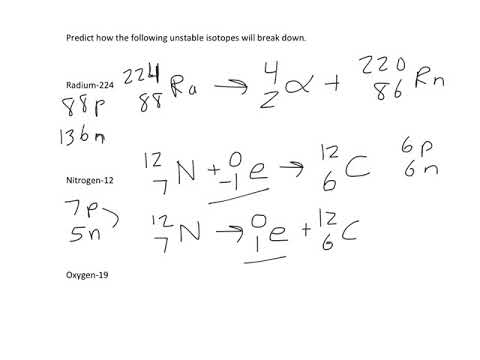 Predict how the following unstable isotopes will break down.
Radium-224 ²²⁴₈₈Ra → ⁴₂α + ²²⁰₈₆Rn
88p
136n
Nitrogen-12 ¹²₇N + ⁰₋₁e → ¹²₆C 6p
6n
7p
5n ¹²₇N → ⁰₁e + ¹²₆C
Oxygen-19